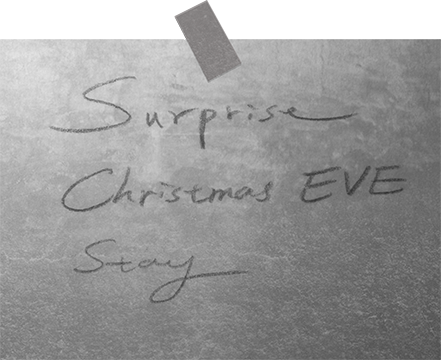 Surprise
Christmas EVE
Stay